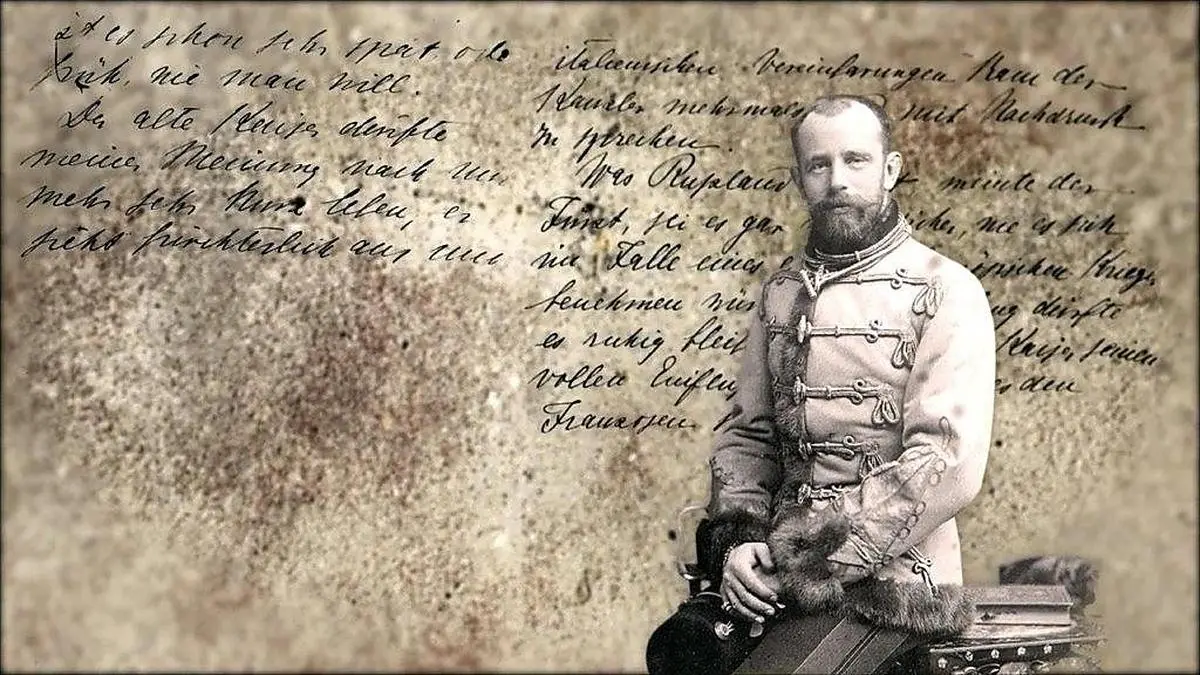 ist es schon sehr spät oder
früh, wie man will.
Der alte Kaiser dürfte
meiner Meinung nach nun
mehr sehr kurz leben, er
sieht fürchterlich aus und
italienischen Vereinbarungen kam der
Kanzler mehrmals mit Nachdruck
zu sprechen.
Was Rußland meinte der
Fürst, sei es gar wie es sich
im Falle eines Krieges
benehmen dürfte
es ruhig Kaiser seinen
vollen den
Franzosen